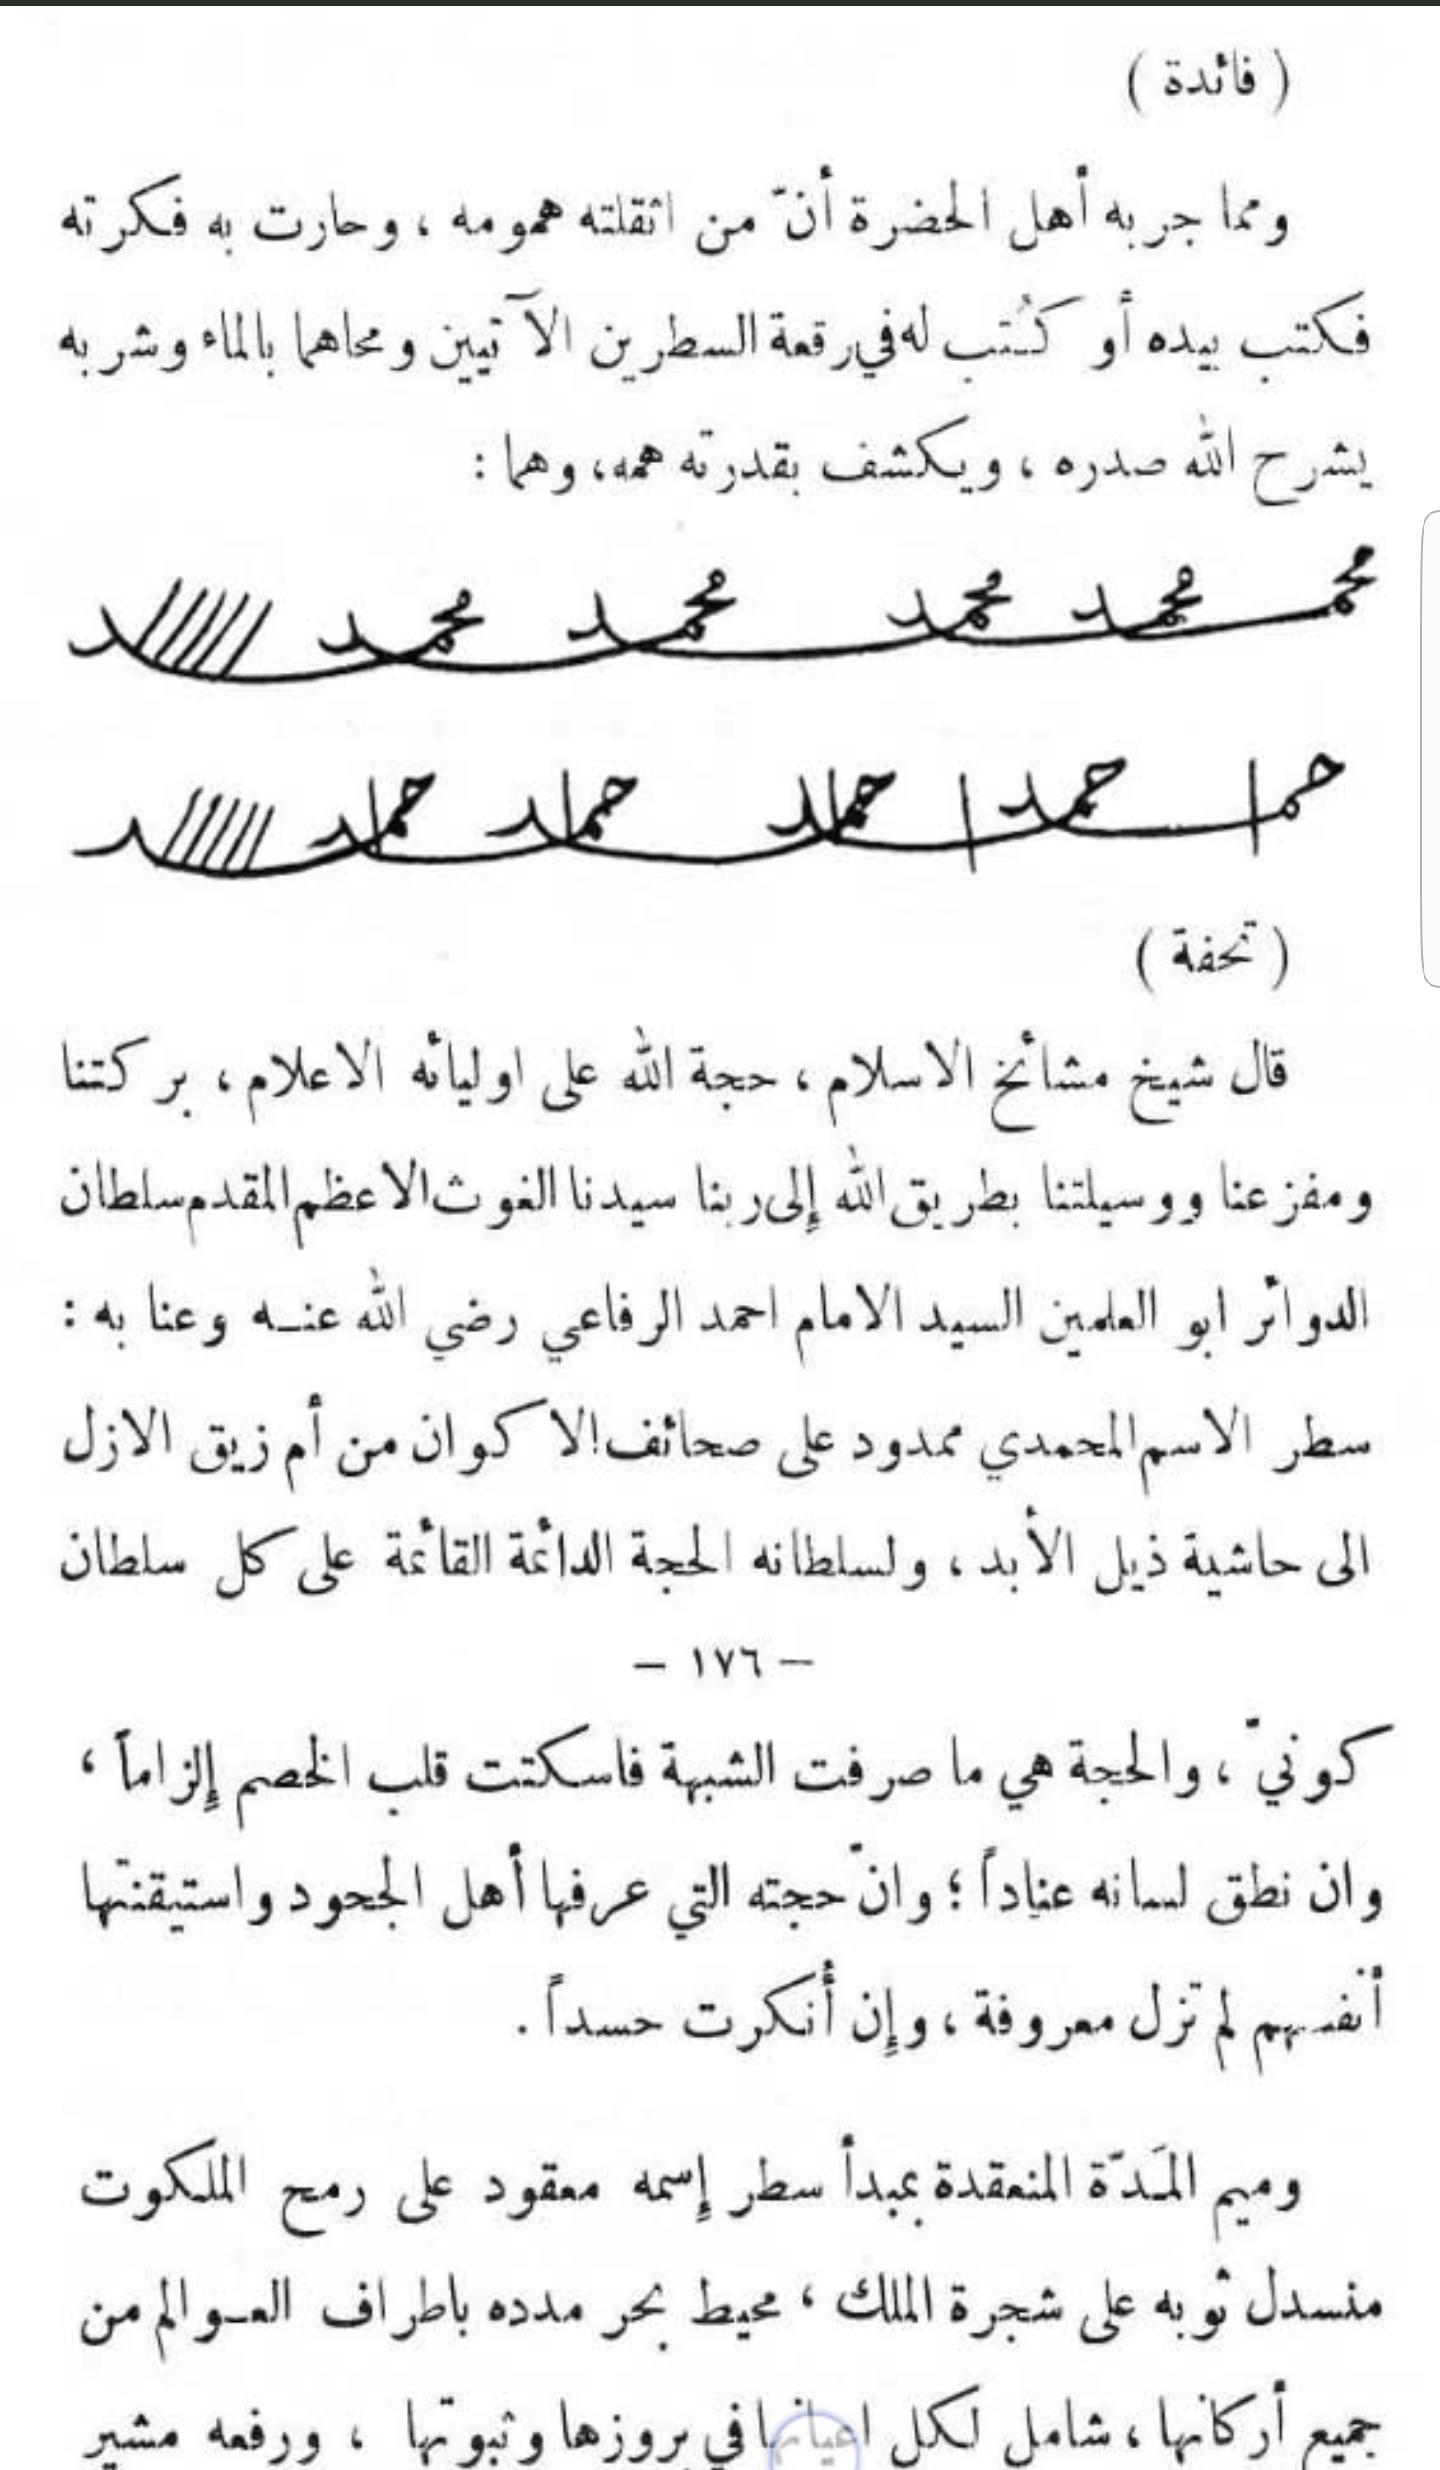 ( فائدة )
ومما جربه أهل الحضرة أنّ من اثقلته همومه ، وحارت به فكرته
فكتب بيده أو كُتب له في رقعة السطرين الآتيين ومحاهما بالماء وشربه
يشرح الله صدره ، ويكشف بقدرته همه، وهما :
محمد محمد محمد محمد محمد
حماد
( تحفة )
قال شيخ مشائخ الاسلام ، حجة الله على اوليائه الاعلام ، بركتنا
ومفزعنا ووسيلتنا بطريق الله إلى ربنا سيدنا الغوث الاعظم المقدم سلطان
الدوائر ابو العلمين السيد الامام احمد الرفاعي رضي الله عنه وعنا به :
سطر الاسم المحمدي ممدود على صحائف الاكوان من أم زيق الازل
الى حاشية ذيل الأبد ، ولسلطانه الحجة الدائمة القائمة على كل سلطان
– ١٧٦ –
كونيّ ، والحجة هي ما صرفت الشبهة فاسكتت قلب الخصم إلزاماً ،
وان نطق لسانه عناداً ؛ وانّ حجته التي عرفها أهل الجحود واستيقنتها
أنفسهم لم تزل معروفة ، وإن أنكرت حسداً .
وميم المَدّة المنعقدة بمبدأ سطر إسمه معقود على رمح الملكوت
منسدل ثوبه على شجرة الملك ، محيط بحر مدده باطراف العوالم من
جميع أركانها ، شامل لكل اعيانها في بروزها وثبوتها ، ورفعه مشير